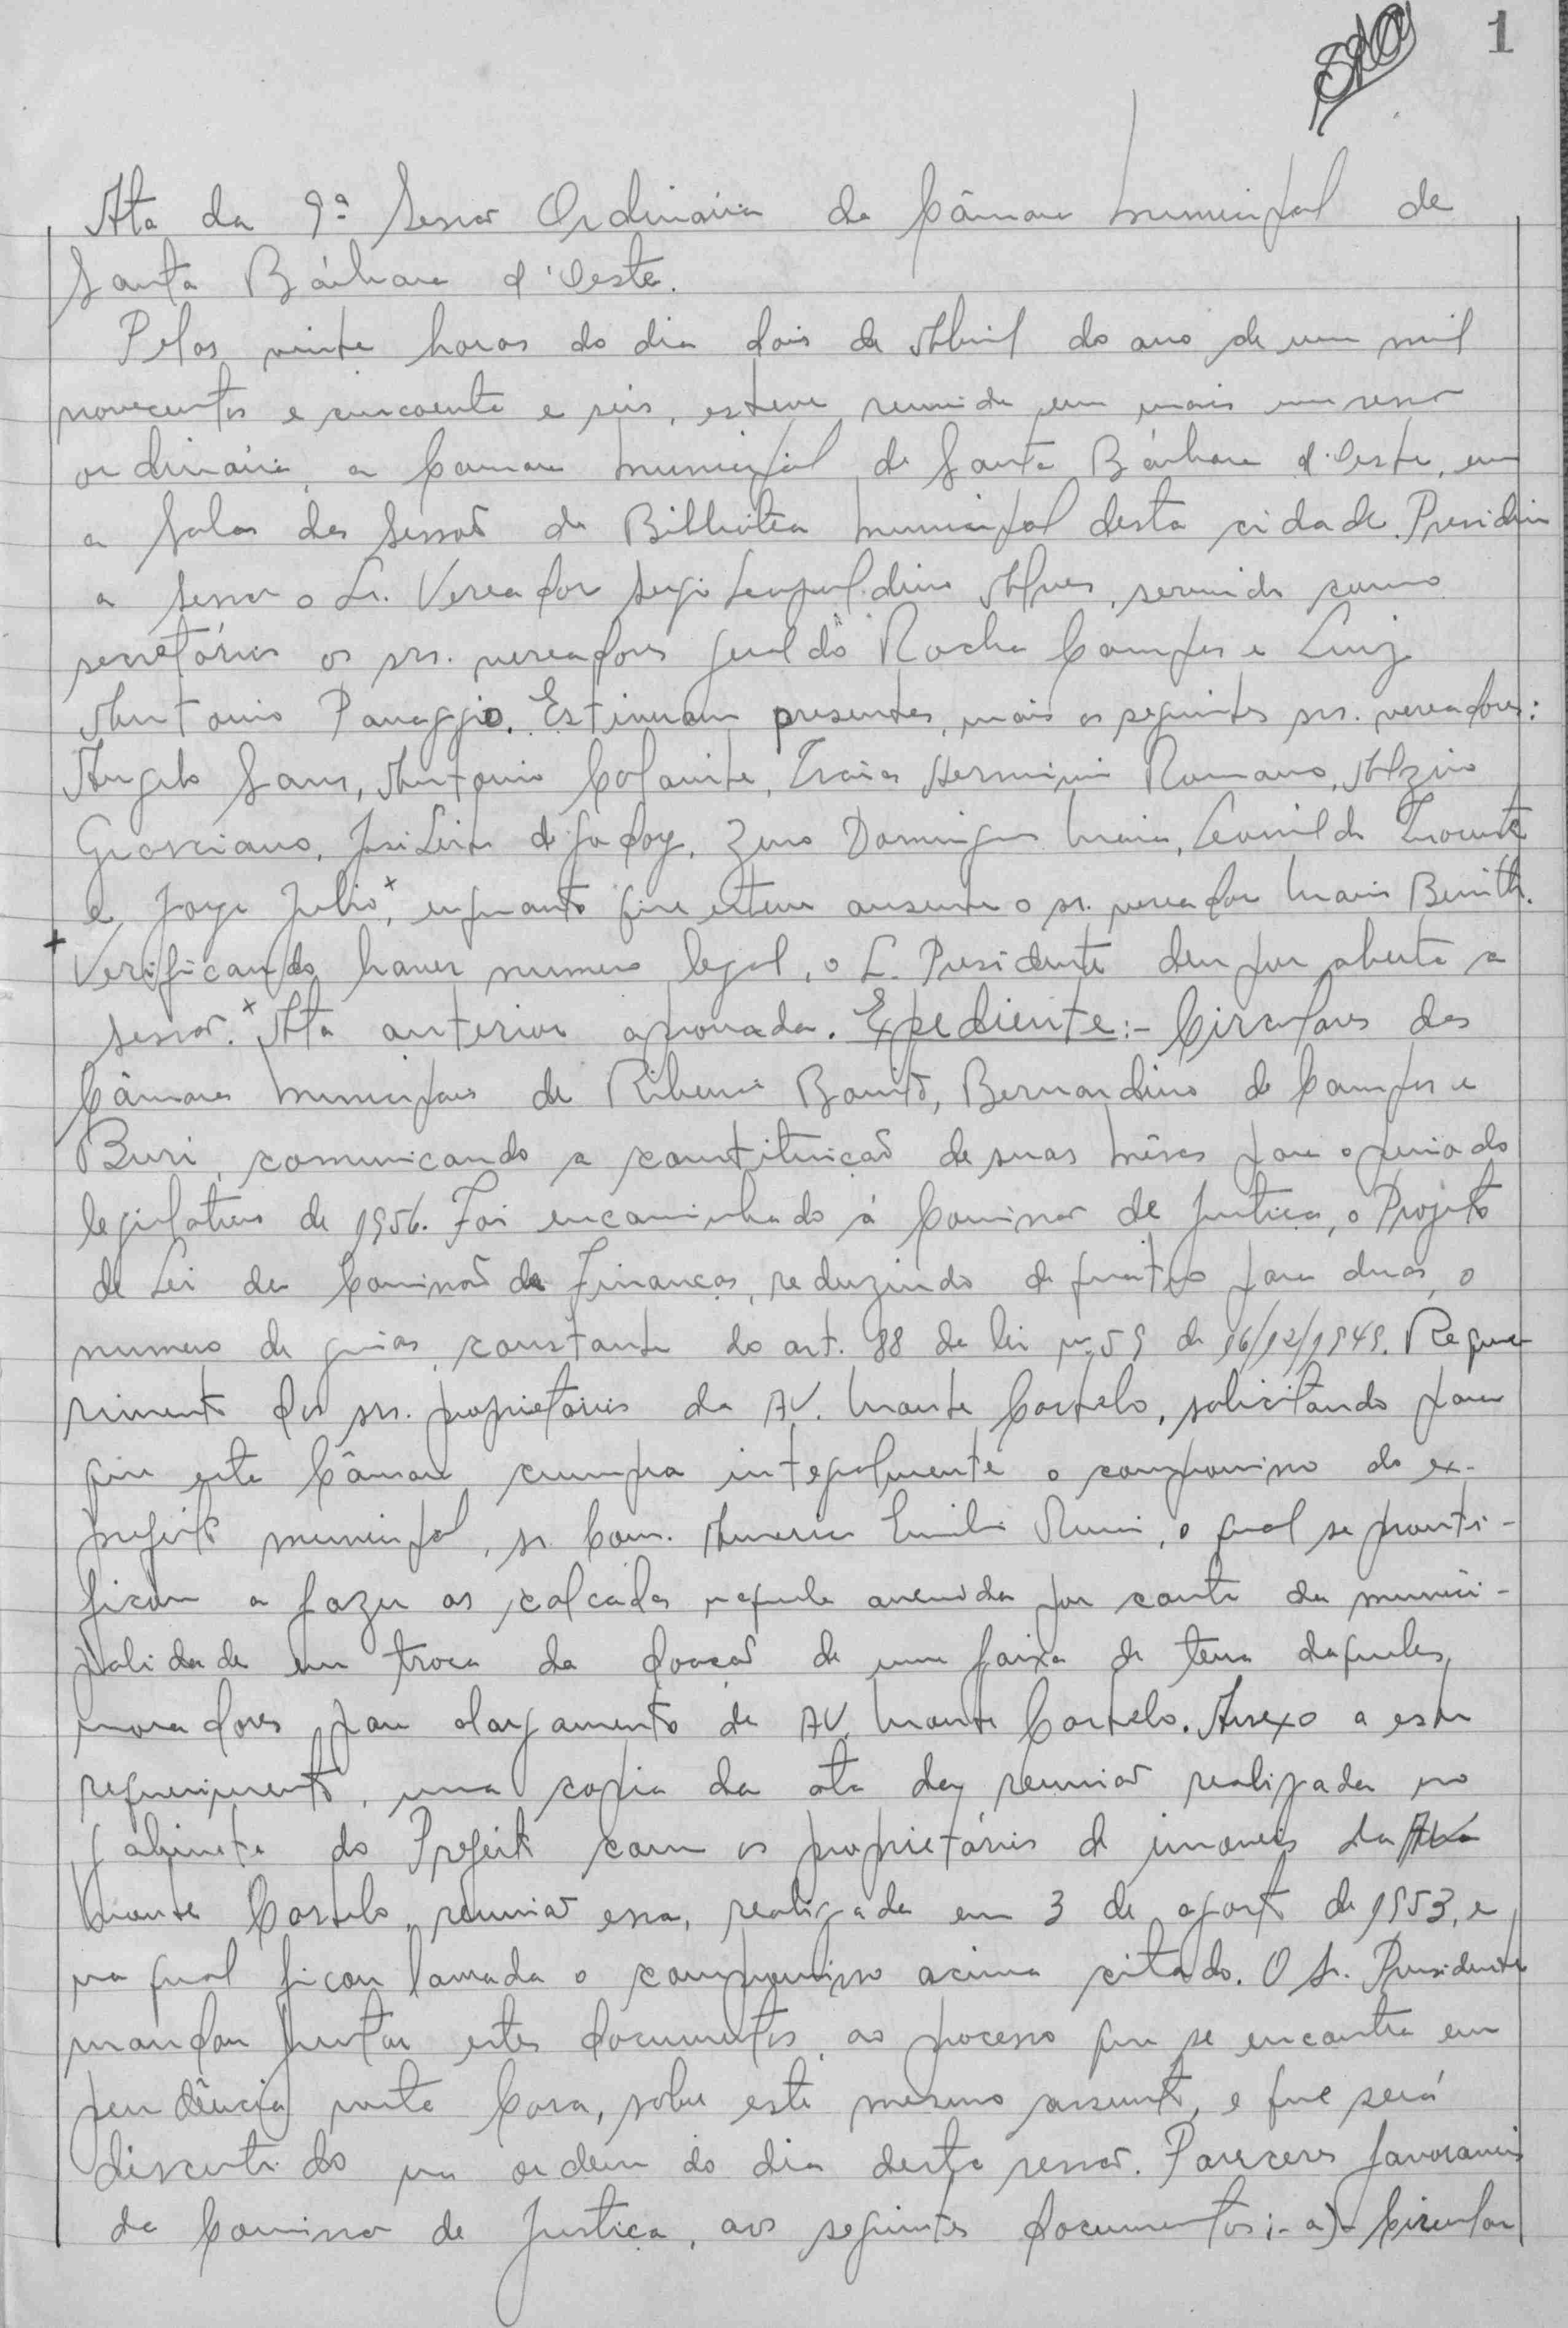 1
Ata da 9ª Sessão Ordinária da Câmara Municipal de
Santa Bárbara d'Oeste.
Pelas vinte horas do dia dois de Abril do ano de um mil
novecentos e cincoenta e seis, esteve reunida em mais um sessão
ordinária, a Camara Municipal de Santa Bárbara d'Oeste, em
a Salas das Sessoẽs da Biblioteca Municipal desta cidade. Presidiu
a Sessão o Sr. Vereador Sergio Leopoldino Alves, servindo como
secretários os srs. vereadores Geraldo Rocha Campos e Luiz
Antonio Panaggio. Estiveram presentes, mais os seguintes srs. vereadores:
Angelo Sans, Antonio Colante, Izaias Herminio Romano, Alzino
Grasciano, José Leite de Godoy, Zeno Domingues Maia, Leonildo
e Jorge Julio, enquanto que esteve ausente o sr. vereador Mario
Verificando haver numero legal, o S. Presidente deu por aberta a
sessão. Ata anterior aprovada. Expediente:- Circulares das
Câmaras Municipais de Ribeirão Bonito, Bernardino de Campos e
Buri, comunicando a constituição de suas mêsas para o periodo
legislativo de 1956. Foi encaminhado á Comissão de Justiça, o Projeto
de Lei da Comissão de Finanças, reduzindo de quatro para duas, o
numero de guias constante do art. 88 da lei nº 59 de 16/12/1949. Reque
rimento dos srs. proprietários da AV. Monte Castelo, solicitando para
que esta Câmara cumpra integralmente o compromisso do ex-
prefeito municipal, sr. Com. Americo Emilio Romi, o qual se pronti-
ficou a fazer as calçadas naquela avenida por conta da munici-
palidade em troca da doação de uma faixa de terra daqueles
moradores para alargamento da AV. Monte Castelo. Anexo a este
requerimento, uma copia da ata da reunião realizada no
gabinete do Prefeito com os proprietários de imoveis da
Monte Castelo, reunião essa, realizada em 3 de agosto de 1953, e
na qual ficou lavrada o compromisso acima citado. O Sr. Presidente
mandou juntar estes documentos, ao processo que se encontra em
pendência nesta Casa, sobre este mesmo assunto, e que será
discutido na ordem do dia desta sessão. Pareceres favoraveis
da Comissão de Justiça, aos seguintes documentos:- a)- Circular